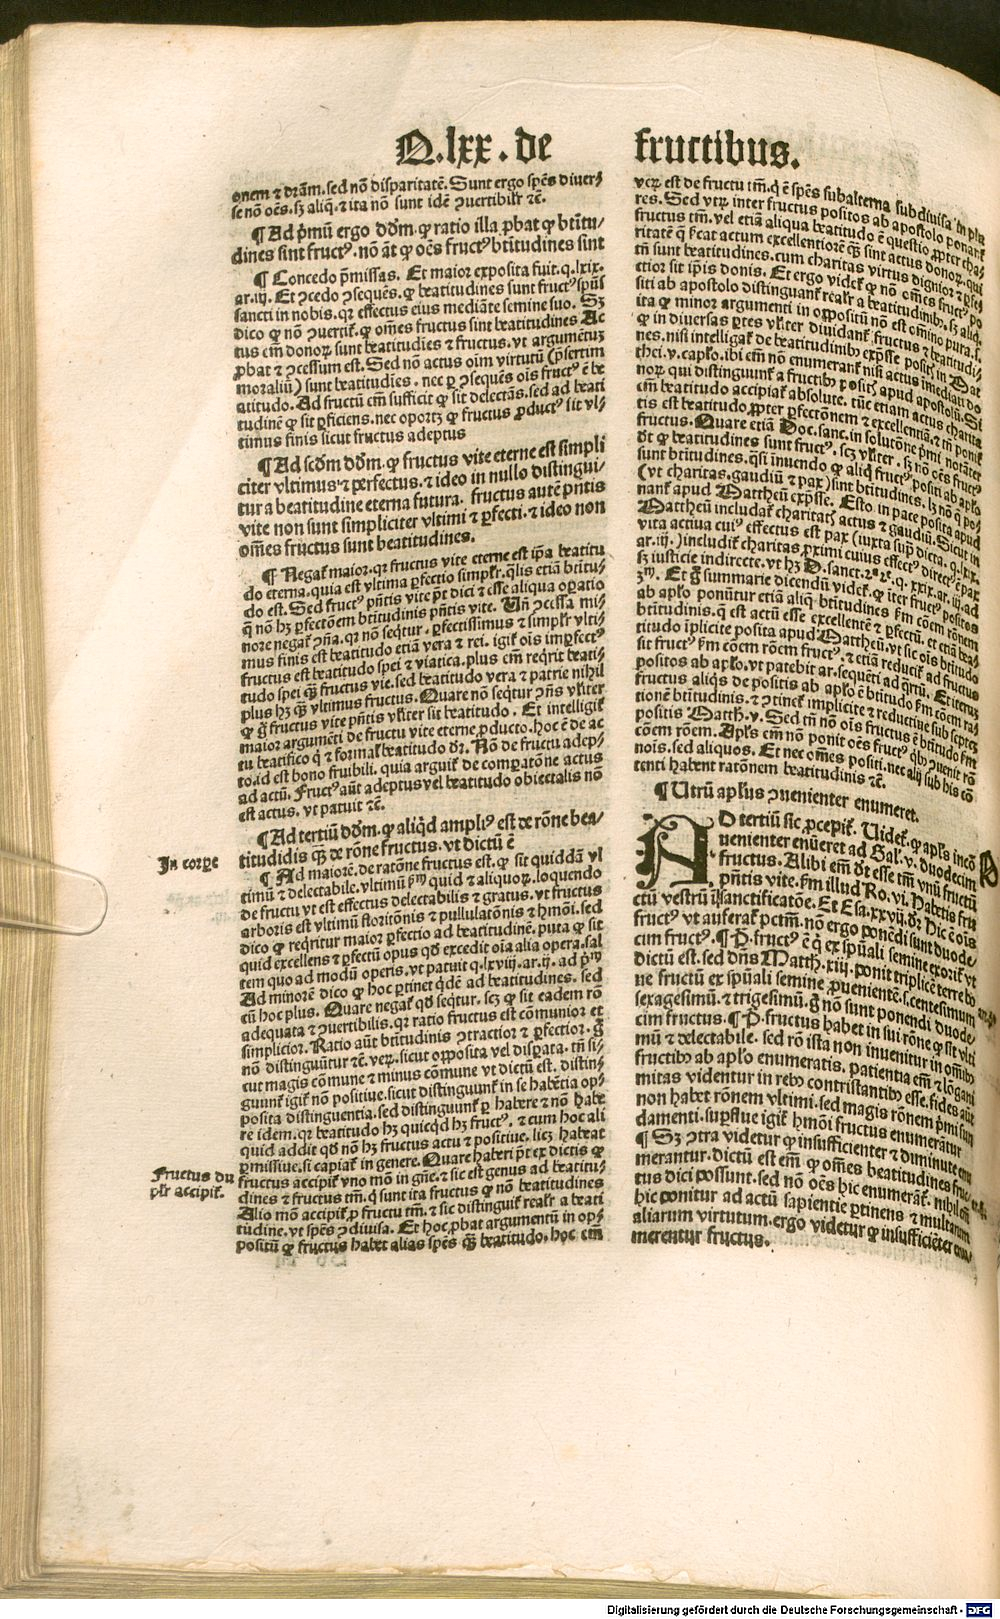 Q.lxx. de fructibus.
onem ⁊ dr̃am. sed nõ disparitatẽ. Sunt ergo sp̃es diuer⸗
se nõ oẽs. sꝫ aliq̃. ⁊ ita nõ sunt idẽ ꝯuertibilr̃ ⁊c̃.
¶ Ad p̃mũ ergo dõm. ꝙ ratio illa ꝓbat ꝙ bt̃itu⸗
dines sint fructꝰ. nõ aũt ꝙ oẽs fructꝰ bt̃itudines sint
¶ Concedo p̃missas. Et maior exposita fuit. q. lxix.
ar. iij. Et ꝯcedo ꝯsequẽs. ꝙ beatitudines sunt fructꝰ sp̃us
sancti in nobis. qr effectus eius mediãte semine suo. Sꝫ
dico ꝙ nõ ꝯuertit̃. ꝙ om̃es fructus sint beatitudines Ac
tus em̃ donoꝝ sunt beatitudĩes ⁊ fructus. vt argumẽtũ
ꝓbat ⁊ ꝯcessum est. Sed nõ actus oĩm virtutũ (p̃sertim
moraliũ) sunt beatitudĩes. nec ꝑ ꝯsequẽs oĩs fructꝰ ẽ be
atitudo. Ad fructũ em̃ sufficit ꝙ sit delectãs. sed ad beati
tudinẽ ꝙ sit ꝑficiens. nec oportꝫ ꝙ fructus ꝓductꝰ sit vl⸗
timus finis sicut fructus adeptus
¶ Ad scd̃m dõm. ꝙ fructus vite eterne est simpli
citer vltimus ⁊ perfectus. ⁊ ideo in nullo distingui⸗
tur a beatitudine eterna futura. fructus autẽ p̃ntis
vite non sunt simpliciter vltimi ⁊ ꝑfecti. ⁊ ideo non
om̃es fructus sunt beatitudines.
¶ Negat̃ maior. qr fructus vite eterne est ip̃a beatitu
do eterna. quia est vltima ꝑfectio simplr̃. q̃lis etiã btĩtu⸗
do est. Sed fructꝰ p̃ntis vite p̃t dici ⁊ esse aliqua oꝑatio
q̃ nõ hꝫ ꝑfectõem btĩtudinis p̃ntis vite. Vñ ꝯcessa mi⸗
nore negat̃ ꝯña. qr nõ seqt̃ur. ꝑfectissimus ⁊ simplr̃ vlti⸗
mus finis est beatitudo etiã vera ⁊ rei. igit̃ oĩs imꝑfectꝰ
fructus est beatitudo spei ⁊ viatica. plus em̃ reqrit beati⸗
tudo spei q̃ꝫ fructus vie. sed beatitudo vera ⁊ patrie nihil
plus hꝫ q̃ꝫ vltimus fructus. Quare nõ seqt̃ur ꝯñs vl̃iter
ꝙ g̃ fructus vite p̃ntis vl̃iter sit beatitudo. Et intelligit̃
maior argumẽti de fructu vite eterne ꝓducto. hoc ẽ de ac
tu beatifico q̃ ⁊ formal̃ beatitudo dr̃. Nõ de fructu adep⸗
to. id est bono fruibili. quia arguit̃ de comparatõne actus
ad actũ. Fructꝰ aũt adeptus vel beatitudo obiectalis nõ
est actus. vt patuit ⁊c̃.
¶ Ad tertiũ dõm. ꝙ aliq̃d ampliꝰ est de rõne bea⸗
In corꝑe titudidis q̃ꝫ de rõne fructus. vt dictũ ẽ
¶ Ad maiorẽ. de ratõne fructus est. ꝙ sit quiddã vl
timũ ⁊ delectabile. vltimũ ẽm quid ⁊ aliquoꝝ. loquendo
de fructu vt est effectus delectabilis ⁊ gratus. vt fructus
arboris est vltimũ floritõnis ⁊ pullulatõnis ⁊ hmõi. sed
dico ꝙ reqritur maior ꝑfectio ad beatitudinẽ. puta ꝙ sit
quid excellens ⁊ ꝑfectũ opus qd̃ excedit oĩa alia opera. sal
tem quo ad modũ operis. vt patuit q. lxviij. ar. ij. ad p̃m
Ad minorẽ dico ꝙ hoc ꝑtinet q̃dẽ ad beatitudines. sed
cũ hoc plus. Quare negat̃ qd̃ seqt̃ur. scꝫ ꝙ sit eadem rõ
adequata ⁊ ꝯuertibilis. qr ratio fructus est cõmunior et
simplicior. Ratio aũt btĩtudinis ꝯtractior ⁊ ꝑfectior. g̃
nõ distinguũtur ⁊c̃. veꝝ. sicut oꝓposita vel disꝑata. tñ si⸗
cut magis cõmune ⁊ minus cõmune vt dictũ est. distin⸗
guunt̃ igit̃ nõ positiue. sicut distinguunt̃ in se habẽtia op⸗
posita distinguentia. sed distinguunt̃ ꝑ habere ⁊ nõ habe
re idem. qr beatitudo hꝫ quicq̃d hꝫ fructꝰ. ⁊ cum hoc ali
quid addit qd̃ nõ hꝫ fructus actu ⁊ positiue. licꝫ habeat
ꝑmissiue. si capiat̃ in genere. Quare haberi p̃t ex dictis ꝙ
Fructus du
plr̃ accipit̃.
fructus accipit̃ vno mõ in gñe. ⁊ sic est genus ad beatitu⸗
dines ⁊ fructus tm̃. q̃ sunt ita fructus ꝙ nõ beatitudines
Alio mõ accipit̃ ꝓ fructu tm̃. ⁊ sic distinguit̃ realr̃ a beati
tudine. vt sp̃es ꝯdiuisa. Et hoc ꝓbat argumentũ in op⸗
positũ ꝙ fructus habet alias sp̃es q̃ꝫ beatitudo. hoc em̃
veꝝ est de fructu tm̃. q̃ ẽ sp̃es subalterna subdiuisa in
res. Sed vtꝝ inter fructus positos ab apostolo ponant̃
fructus tm̃. vel etiã aliqua beatitudo ẽ questio ꝓpter cha⸗
ritatẽ q̃ sicat actum excellentiorẽ q̃ꝫ sint actus donoꝝ. qui
tñ sunt beatitudines. cum charitas virtus dignior ⁊ ꝑfe⸗
ctior sit ip̃is donis. Et ergo videt̃ ꝙ nõ om̃es fructꝰ po
siti ab apostolo distinguant̃ realr̃ a beatitudinibꝰ. sꝫ aliq̃.
ita ꝙ minor argumenti in oꝓpositũ nõ est om̃ino pura. s.
ꝙ in diuersas ꝑtes vl̃iter diuidant̃ fructus ⁊ beatitudi⸗
nes. nisi intelligat̃ de beatitudinibꝰ exp̃sse positꝭ in Mat
thei. v. cap̃lo. ibi em̃ nõ enumerant̃ nisi actus imediati do
noꝝ qui distinguunt̃ a fructibꝰ positꝭ apud apostolũ. Si
em̃ beatitudo accipiat̃ absolute. tũc etiam actus charita
tis est beatitudo. ꝓpter ꝑfectõnem ⁊ excellentiã. ⁊ tñ ponit̃
fructus. Quare etiã Doc. sanc. in solutõne p̃mi notãter
dt̃ ꝙ beatitudines sunt fructꝰ. scꝫ vl̃iter. sꝫ nõ oẽs fructꝰ
sunt btĩtudines. q̃si inuendo ꝙ aliq̃ fructꝰ. positi ab ap̃lo
(vt charitas. gaudiũ ⁊ pax) sint btĩtudines. lꝫ nõ q̃ po⸗
nant̃ apud Mattheũ exp̃sse. Esto. in pace posita apud
Mattheũ includat̃ charitatꝭ actus ⁊ gaudiũ. Sicut in
vita actiua cuiꝰ effectus est pax (iuxta sup̃ dicta. q. lxix.
ar. iij.) includit̃ charitas ꝓximi cuius effectꝰ directꝰ ẽ pax
sꝫ iusticie indirecte. vt hꝫ D. sanct. 2ª 2ᵉ. q. xxix. ar. iij. ad
3ᵐ. Et g̃ summarie dicendũ videt̃. ꝙ iter fructꝰ positos
ab aplo ponũtur etiã aliq̃ btĩtudines ẜm cõem rõnem
btĩtudinis. q̃ est actũ esse excellentẽ ⁊ ꝑfectũ. et etiã bea⸗
titudo ĩplicite posita apud Mattheũ. vt sic oĩs btĩtudo
sit fructꝰ ẜm cõem rõem fructꝰ. ⁊ etiã reducit̃ ad fructus
positos ab ap̃lo. vt patebit ar. sequẽti ad q̃rtũ. Et iterũ
fructus aliq̃s de positis ab ap̃lo ẽ btĩtudo ẜm cõem ra⸗
tionẽ btĩtudinis. ⁊ ꝯtinet̃ implicite ⁊ reductiue sub septẽ
positis Matth. v. Sed tñ nõ oĩs fructus ẽ btĩtudo ẜm
cõem rõem. Ap̃ls em̃ nõ ponit oẽs fructꝰ qͥbꝰ ꝯuenit rõ
nõis. sed aliquos. Et nec om̃es positi. nec alij sub his cõ
tenti habent ratõnem beatitudinis ⁊c̃.
¶ Vtrũ ap̃lus ꝯuenienter enumeret.
AD tertiũ sic ꝓcepit̃. Videt̃. ꝙ apl̃s incõ
uenienter enũeret ad Gal. v. duodecim
fructus. Alibi em̃ dt̃ esse tm̃ vnũ fructũ
p̃ntis vite. ẜm illud Ro. vi. Habetis fru
ctũ vestrũ ĩ sanctificatõe. Et Esa. xxvij. dr̃. Hic ẽ oĩs
fructꝰ vt auferat̃ pctm̃. nõ ergo ponẽdi sunt duode
cim fructꝰ. ¶ P. fructꝰ ẽ q̃ ex spũali semine exorit̃ vt
dictũ est. sed dñs Matth. xiij. ponit triplicẽ terre bo
ne fructũ ex spũali semine ꝓuenientẽ. s. centesimum
sexagesimũ. ⁊ trigesimũ. g̃ nõ sunt ponendi duode
cim fructus. ¶ P. fructus habet in sui rõne ꝙ sit vlti
mũ ⁊ delectabile. sed rõ ista non inuenitur in om̃ibꝰ
fructibꝰ ab ap̃lo enumeratis. patientia em̃ ⁊ lõgani
mitas videntur in rebꝰ contristantibꝰ esse. fides aũt
non habet rõnem vltimi. sed magis rõnem p̃mi fun
damenti. suꝑflue igit̃ hmõi fructus enumerãtur
¶ Sꝫ ꝯtra videtur ꝙ insufficienter ⁊ diminute enu
merantur. dictũ est em̃ ꝙ om̃es beatitudines fruc
tus dici possunt. sed nõ oẽs hic enumerãt̃. nihil em̃
hic ponitur ad actũ sapientie ꝑtinens ⁊ multarum
aliarum virtutum. ergo videtur ꝙ insufficiẽter enu⸗
merentur fructus.
Digitalisierung gefördert durch die Deutsche Forschungsgemeinschaft - DFG